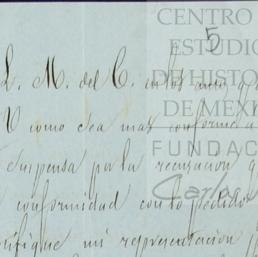 CENTRO
5
ESTUDIO
DE HISTO
DE MEXI
FUNDAC
Carlos
L. M. del C. en los
V como sea mas conforme a
dispensa por la recusacion
conformidad con lo pedido
mi representacion